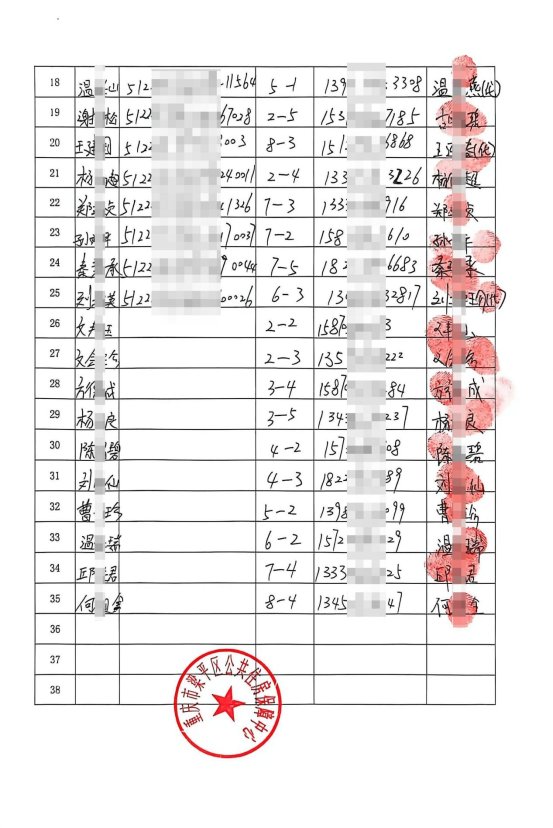 18 温 仙 5122 11564 5-1 139 3308 温 燕(代)
19 谢 梅 5122 67028 2-5 153 7185
20 王建国 5122 3003 8-3 151 6868 王 (代)
21 杨 5122 240011 2-4 133 3226 杨 超
22 郑 贞 5122 1326 7-3 133 916 郑 贞
23 孙 平 5122 170037 7-2 158 610 孙 平
24 秦 承 5122 90044 7-5 18 6683 秦 承
25 刘 英 5122 60026 6-3 13 32817 刘 (代)
26 文 玉 2-2 1587 3 文
27 文会 2-3 135 222 文
28 方 成 3-4 1587 84 方 成
29 杨 良 3-5 134 237 杨 良
30 陈 碧 4-2 157 08 陈 碧
31 刘 仙 4-3 1822 89 刘 仙
32 曹 珍 5-2 1398 099 曹 珍
33 温 瑞 6-2 1572 29 温 瑞
34 邱 君 7-4 1333 25 邱 君
35 何 8-4 1345 47 何
36
37
38
重庆市梁平区公共住房保障中心